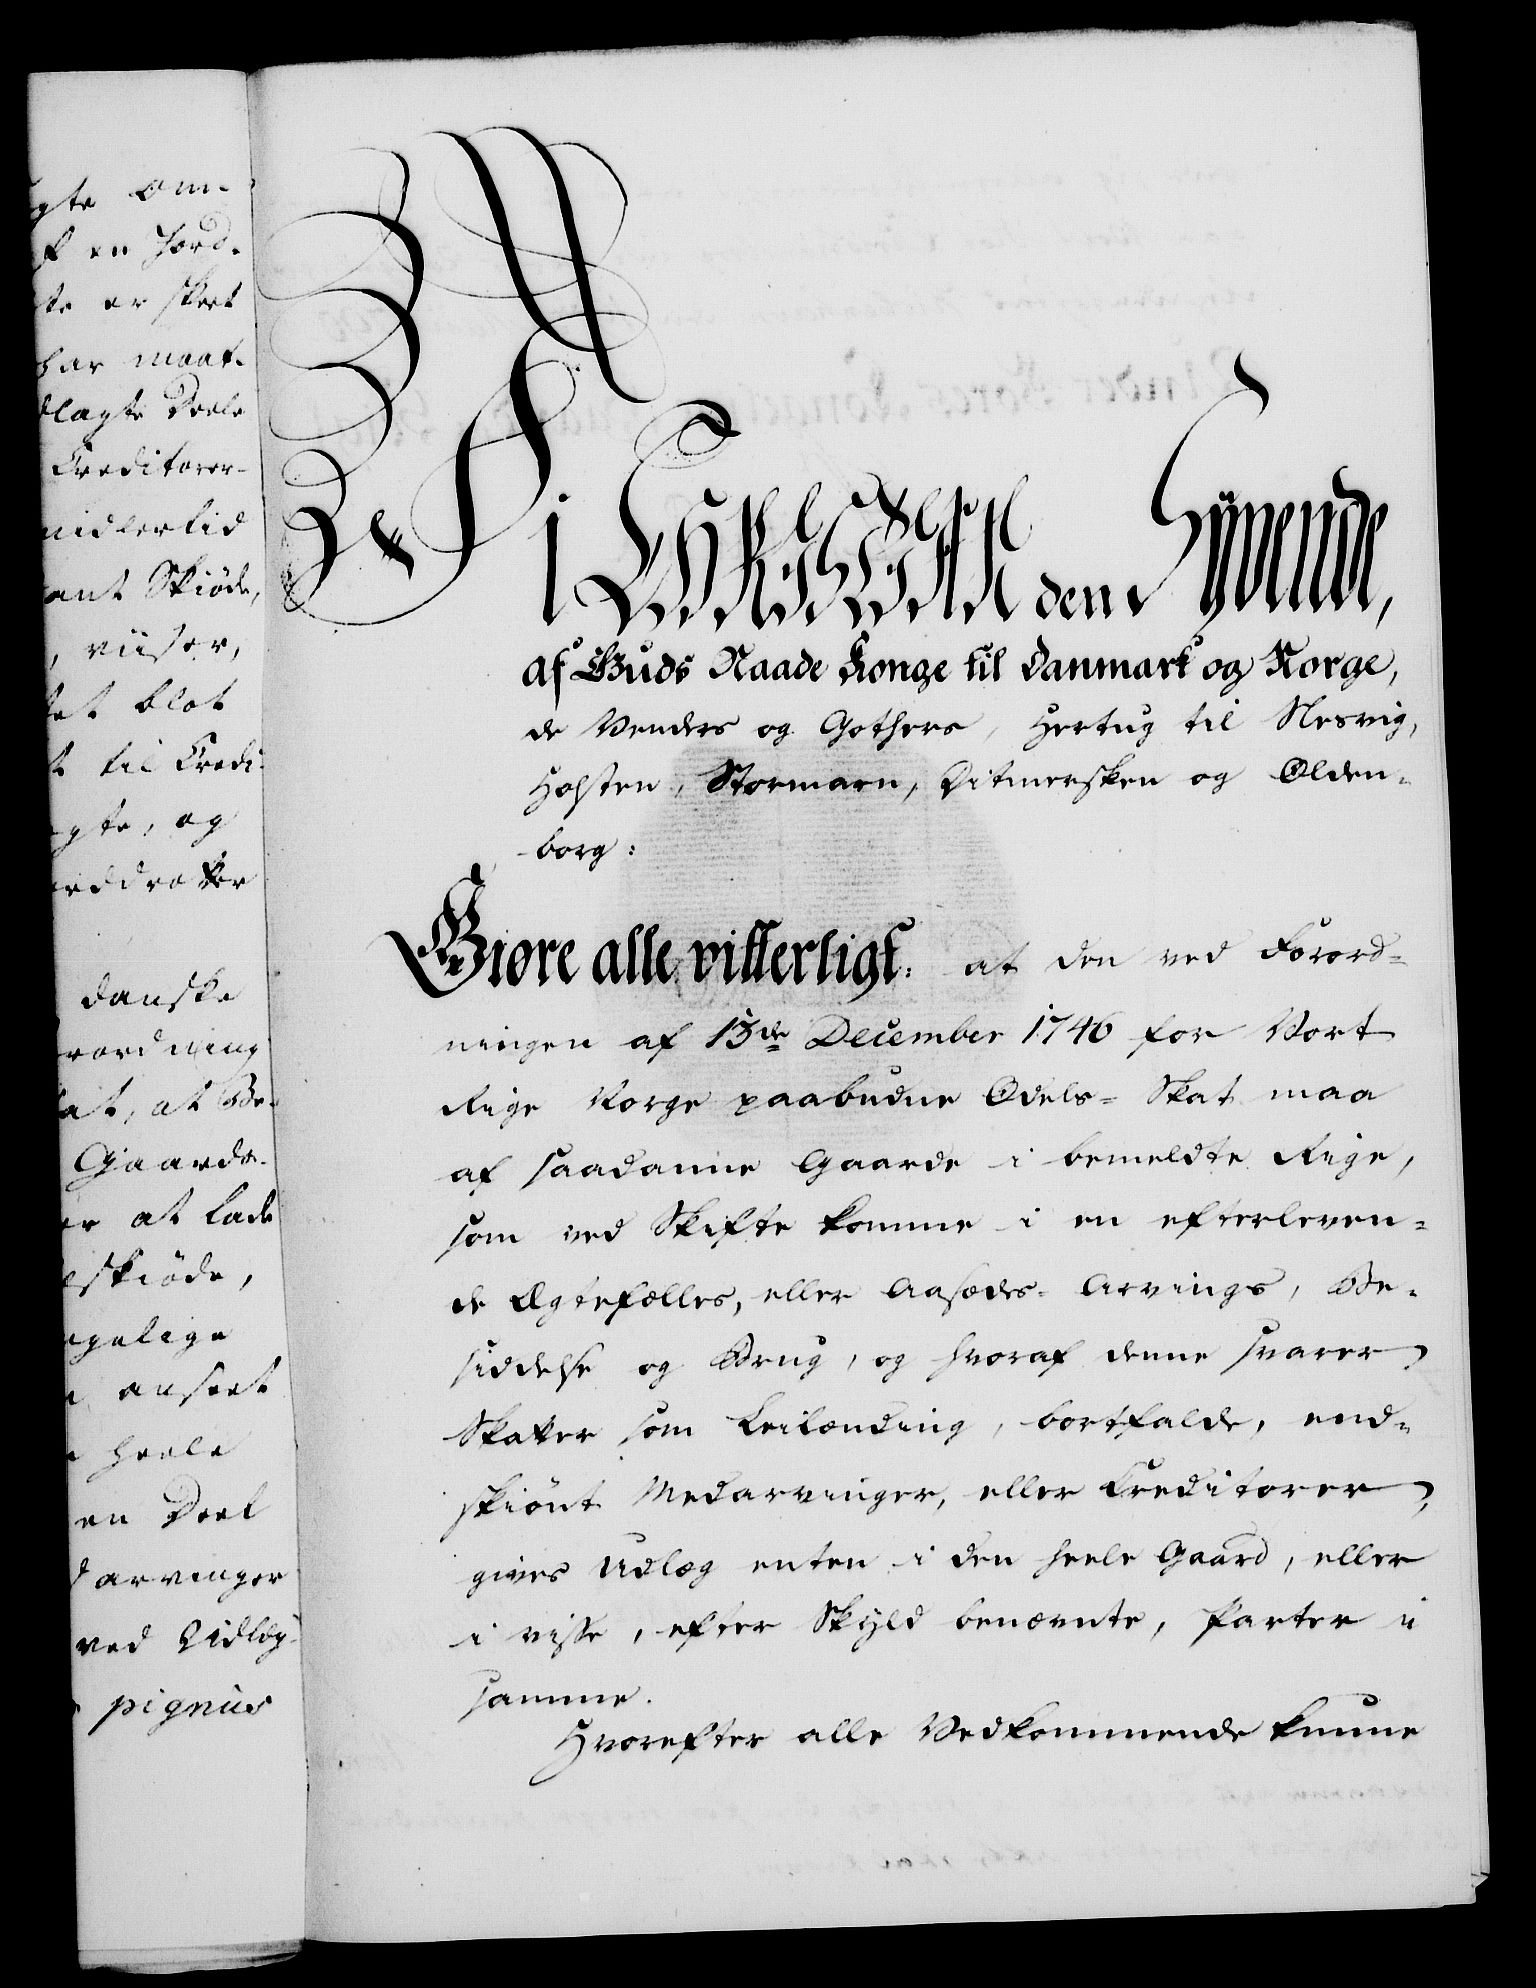 gte Om-
f en Jord-
te er skeet
har maat-
dlagte Deele
Creditorer-
midlertid
ant Skiöde,
, viiser,
et blot
t til Credi-
gte, og
eddraktor
danske
rordning
at, at Be-
Gaarde-
er at lade
skiöde,
gelige
anseet
heele
en Deel
darvinger
ved Vidløy-
pignus
Vi CHRISTIAN den Syvende,
af Guds Naade Konge til Danmark og Norge,
de Venders og Gothers, Hertug til Slesvig,
Holsten, Stormarn, Ditmersken og Olden-
borg:
Giøre alle vitterligt: at den ved Forord-
ningen af 13de December 1746 for Vort
Rige Norge paabudne Odels-Skat maa
af saadanne Gaarde i bemeldte Rige,
som ved Skifte komme i en efterleven-
de Ægtefælles, eller Aasædes-Arvings, Be-
siddelse og Brug, og hvoraf denne svarer
Skatter som Leilænding, bortfalde, end-
skiönt Medarvinger, eller Creditorer,
gives Udlæg enten i den heele Gaard, eller
i visse, efter Skyld benævnte, Parter i
samme.
Hvorefter alle Vedkommende kunne